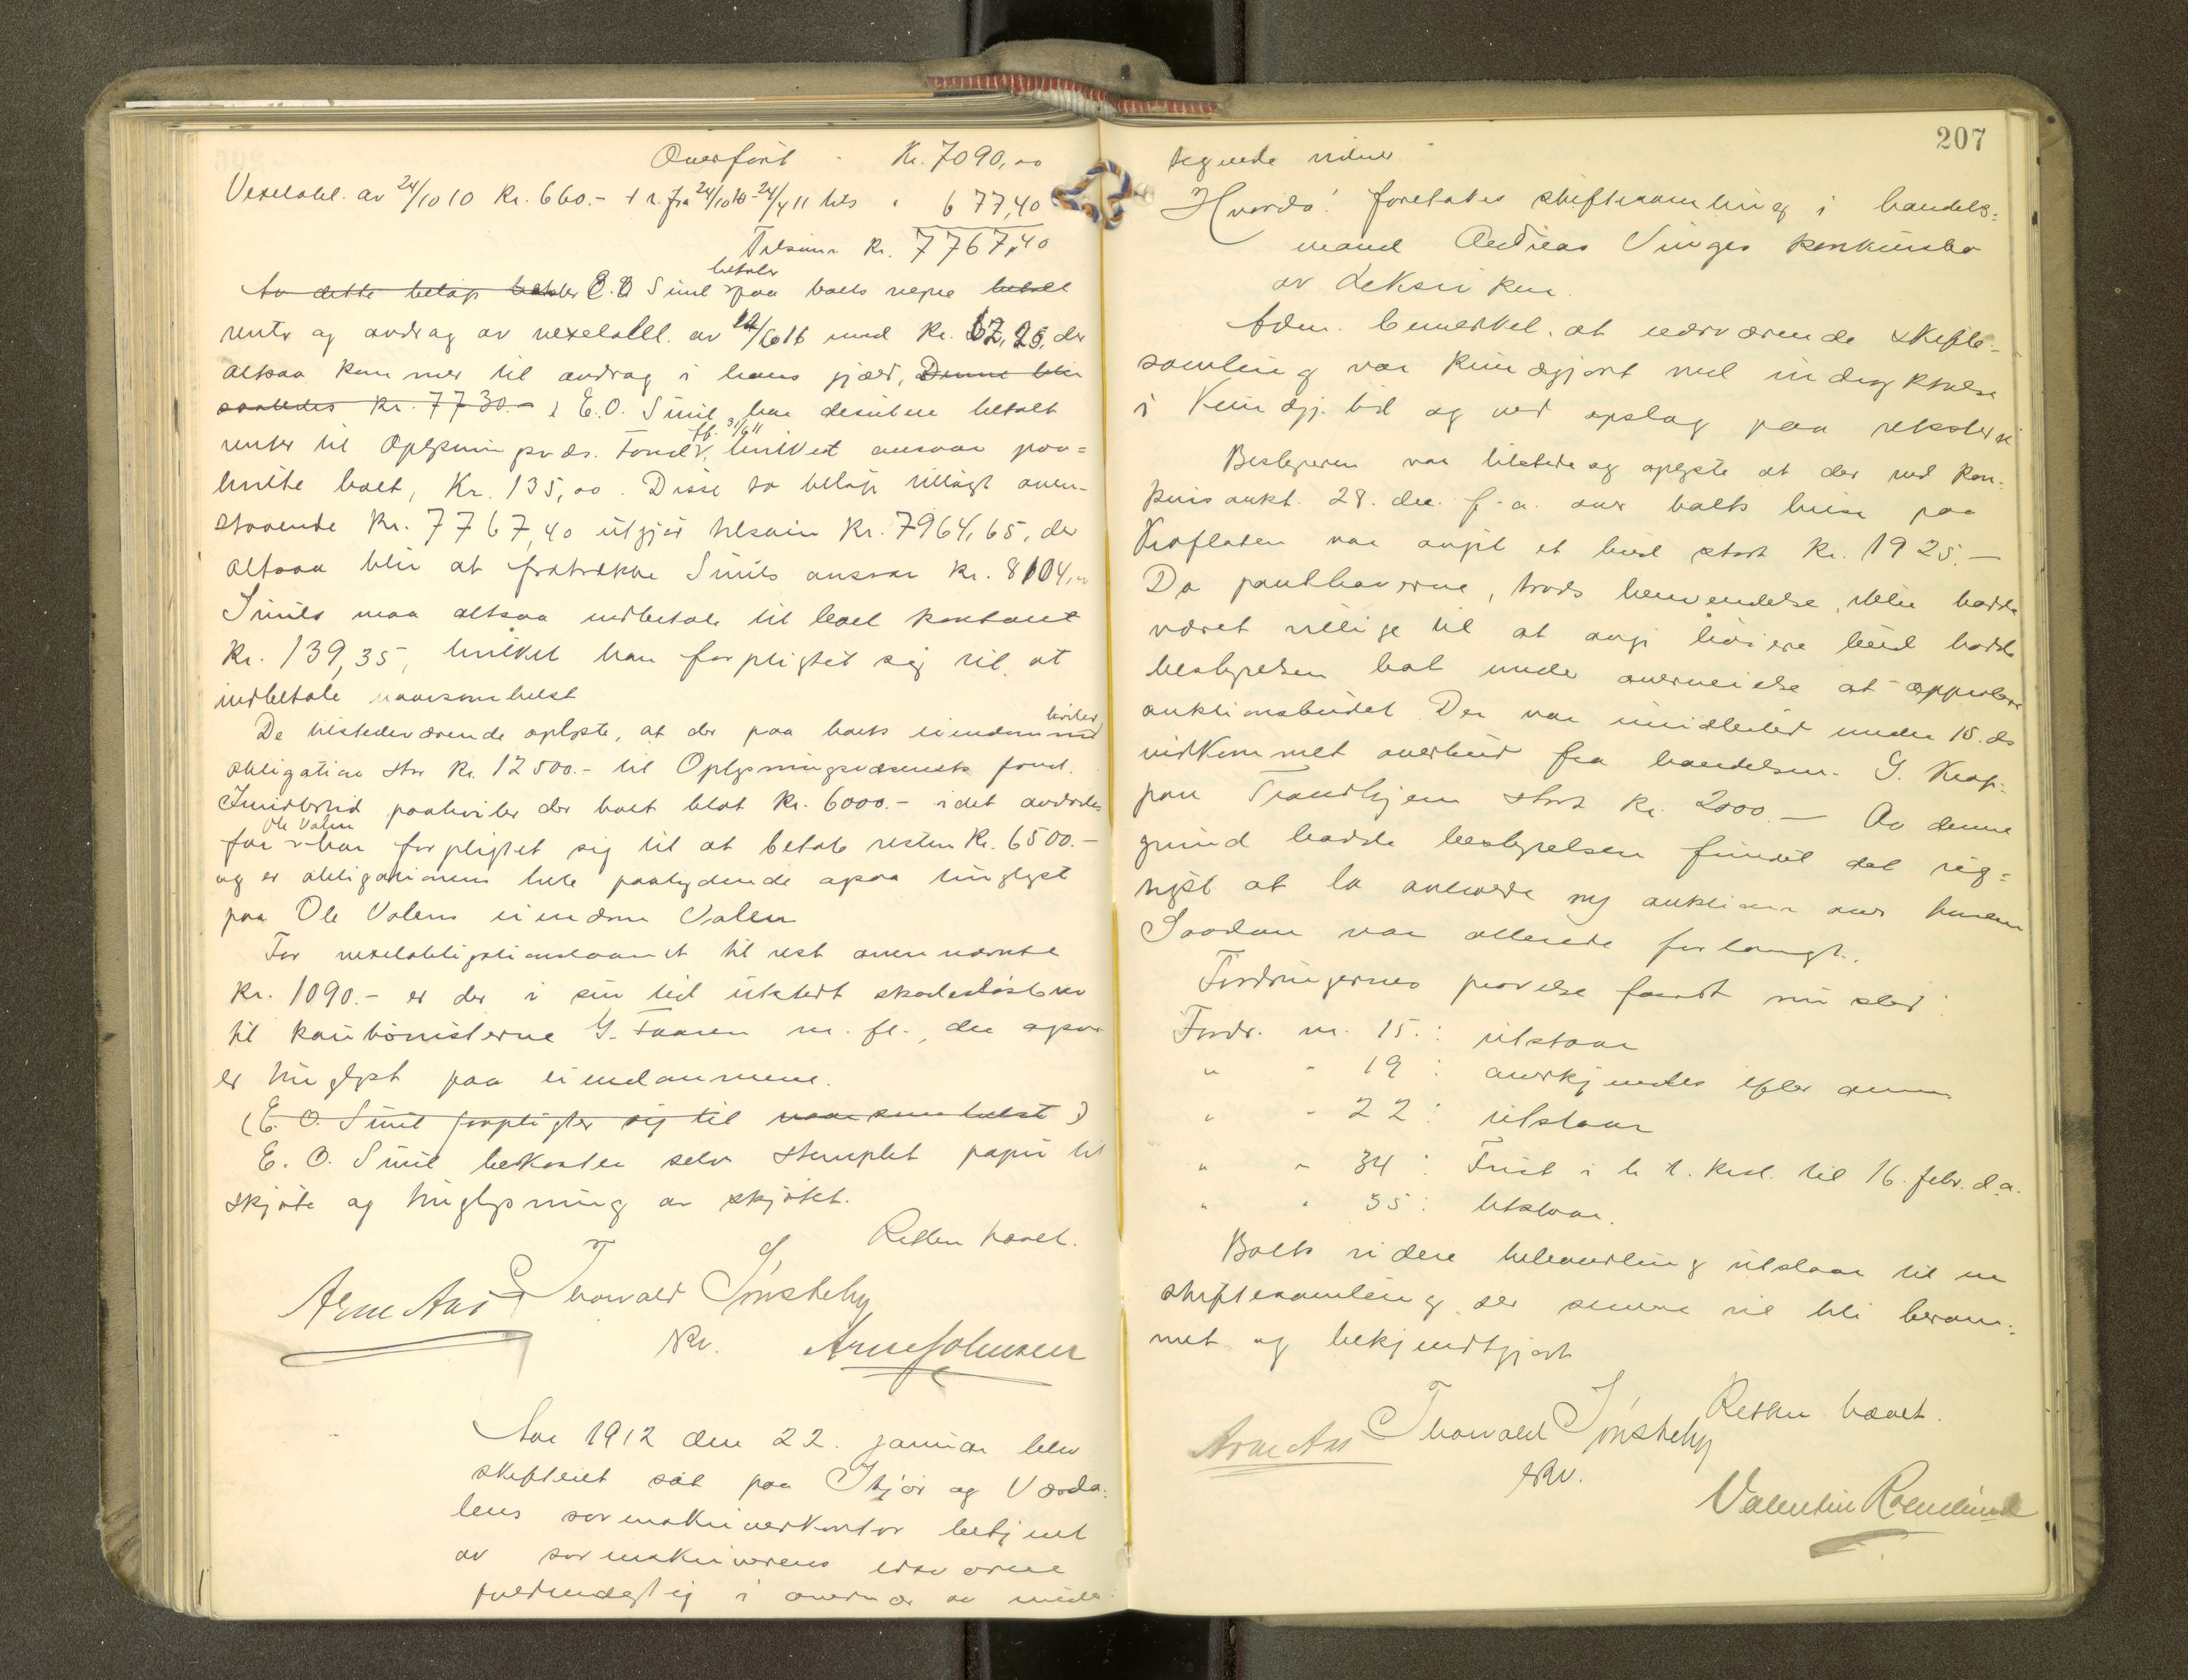 Overført - Kr. 7090,00
Vexelobl. av 24/10 10 Kr. 660.- + r. fra 24/10 10 - 24/4 11 tils " 677,40
Tilsam. Kr. 7767,40
betaler
Av dette beløp betaler E. O Smil paa boets vegne betalt
renter og avdrag av vexelobl. av 12/6 16 med Kr. 62,25, der
altsaa kommer til avdrag i hans gjæld, Denne blir
saaledes Kr. 7730.- E. O. Smil har desuten betalt
ff. 31/6 11
renter til Oplysningsvds. Fond, hvilket ansvar paa-
hvilte boet, Kr. 135,00. Disse to beløp tillagt oven-
staaende Kr. 7767,40 utgjør tilsam Kr. 7964,65, der
altsaa blir at fratrække Smils ansvar Kr. 8104,00
Smil maa altsaa indbetale til boet kontant
Kr. 139,35, hvilket han forpligtet sig til at
indbetale naarsomhelst
De tilstedeværende oplyste, at der paa boets eiendom hviler
obligation stor Kr. 12500.- til Oplysningsvæsenets fond.
Imidlertid paahviler der boet blot Kr. 6000.- idet avdødes
Ole Valen
far har forpligtet sig til at betale resten Kr. 6500.-
og er obligationens hele paalydende ogsaa tinglyst
paa Ole Valens eiendom Valen
For vexelobligationslaanet til rest ovennævnte
Kr. 1090.- er der i sin tid utstedt skadesløsbrev
til kautionisterne G. Faaren m. fl., der ogsaa
er tinglyst paa eiendommene.
(E. O. Smil forpligter sig til naarsomhelst)
E. O. Smil bekoster selv stemplet papir til
skjøte og tinglysning av skjøtet.
Retten hævet.
Arne Aas Thorvald Tønsteby
Kv. Arne Johnsen
Aar 1912 den 22. januar blev
skifteret sat paa Stjør og Værda-
lens sorenskriverkontor betjent
av sorenskriverens edsvorne
fuldmægtig i overvær av under-
207
tegnede vidner.
Hvorda! foretages skiftesamling i handels-
mand Andreas Vinges konkursbo
av Leksviken.
Adm. bemerket at nærværende skifte-
samling var kundgjort ved indrykkelse
i Kundgj. tid og ved opslag paa rtslokale
Bestyreren var tilstede og oplyste at der ved kon-
kursaukt. 28. dec. f. a. over boets huse paa
Kroflaten var avgit et bud stort Kr. 1925.-
Da panthaverne, trods henvendelse, ikke hadde
været villige til at avgi høiere bud hadde
bestyrelsen bat under overveielse at approbere
auktionsbudet. Der var imidlertid under 15. ds
indkommet overbud fra handelsm. G. Krog-
pan Trondhjem stort Kr. 2000.- Av denne
grund hadde bestyrelsen fundet det rig-
tigst at la avholde ny auktion over husene
Saadan var allerede forlangt.
Fordringernes prøvelse fandt nu sted:
Fordr. nr. 15: utstaar
" " 19: anerkjendes efter
" " 22: utstaar
" " 34: Frist i h. t. til 16. febr. d. a.
" " 35: Utstaar.
Boets videre behandling utstaar til en
skiftesamling der senere vil bli beram-
met og bekjendtgjort
Retten hævet.
Arne Aas Thorvald Tønsteby
Kv.
Valentin Rosenlund